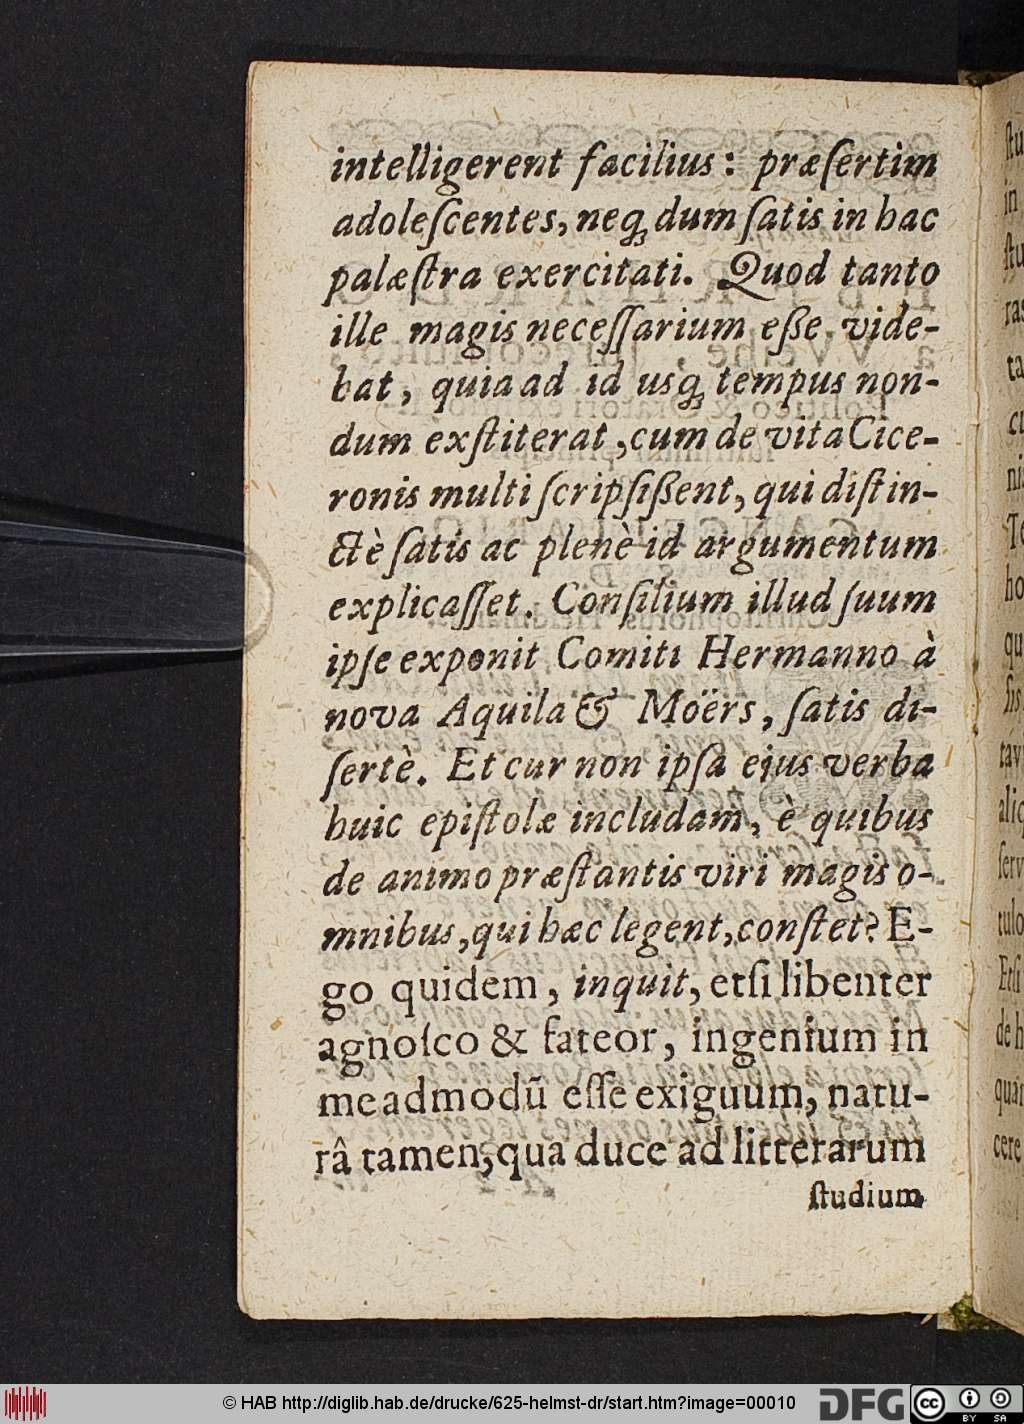 intelligerent facilius: præſertim
adoleſcentes, neqꝫ dum ſatis in hac
palæſtra exercitati. Quod tanto
ille magis neceſſarium eße vide-
bat, quia ad id usqꝫ tempus non-
dum exſtiterat, cum de vita Cice-
ronis multi ſcripſißent, qui diſtin-
ctè ſatis ac plenè id argumentum
explicaſſet. Conſilium illud ſuum
ipſe exponit Comiti Hermanno à
nova Aquila & Moërs, ſatis di-
ſertè. Et cur non ipſa ejus verba
huic epiſtolæ includam, è quibus
de animo præſtantis viri magis o-
mnibus, qui hæc legent, conſtet? E-
go quidem, inquit, etſi libenter
agnoſco & fateor, ingenium in
me admodū eſſe exiguum, natu-
râ tamen, qua duce ad litterarum
ſtudium
© HAB http://diglib.hab.de/drucke/625-helmst-dr/start.htm?image=00010
DFG
cc
BY SA